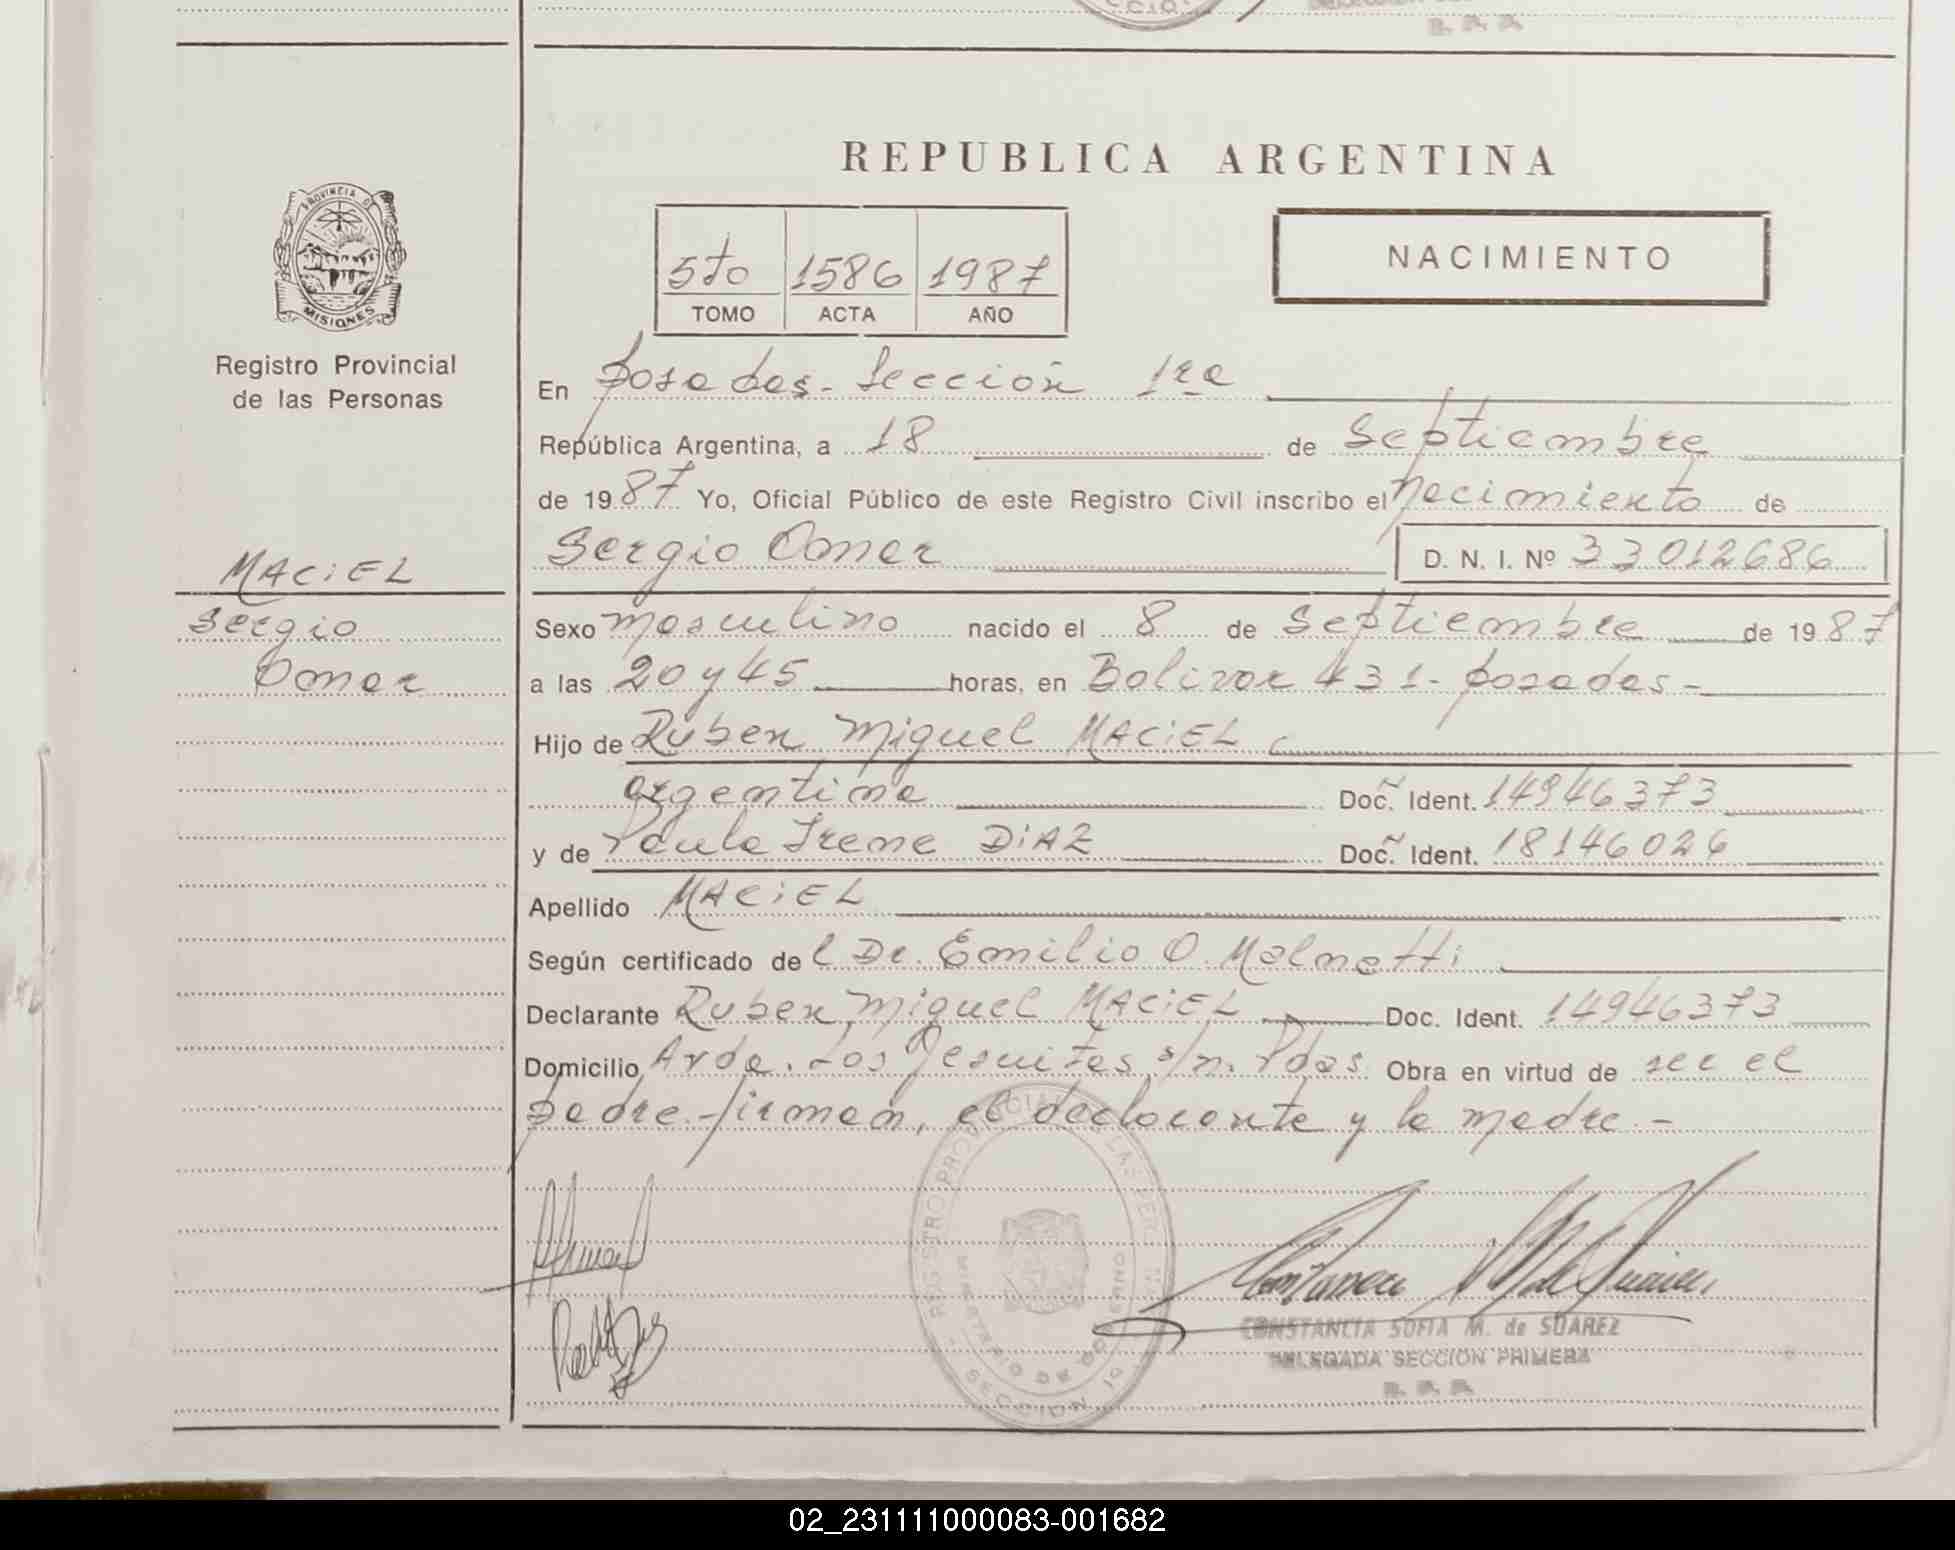 REPUBLICA ARGENTINA
PROVINCIA DE
MISIONES
Registro Provincial
de las Personas
5to 1586 1987
TOMO ACTA AÑO
NACIMIENTO
En Posadas - Sección 1ra
República Argentina, a 18 de Septiembre
de 1987 Yo, Oficial Público de este Registro Civil inscribo el nacimiento de
Sergio Omar D. N. I. Nº 33012686
MACIEL
Sergio
Omar
Sexo masculino nacido el 8 de Septiembre de 1987
a las 20 y 45 horas, en Bolivar 431 - Posadas -
Hijo de Ruben Miguel MACiEL
argentina Doc. Ident. 14946373
y de Paula Irene DiAZ Doc. Ident. 18146026
Apellido MACiEL
Según certificado del Dr. Emilio O. Malmetti
Declarante Ruben Miguel MACiEL Doc. Ident. 14946373
Domicilio Avda. Los Jesuitas s/n. Pdas. Obra en virtud de ser el
padre - firman, el declarante y la madre -
REGISTRO PROVINCIAL DE LAS PER
SECCION 1a
CONSTANCIA SOFIA M. de SUAREZ
DELEGADA SECCION PRIMERA
02_231111000083-001682